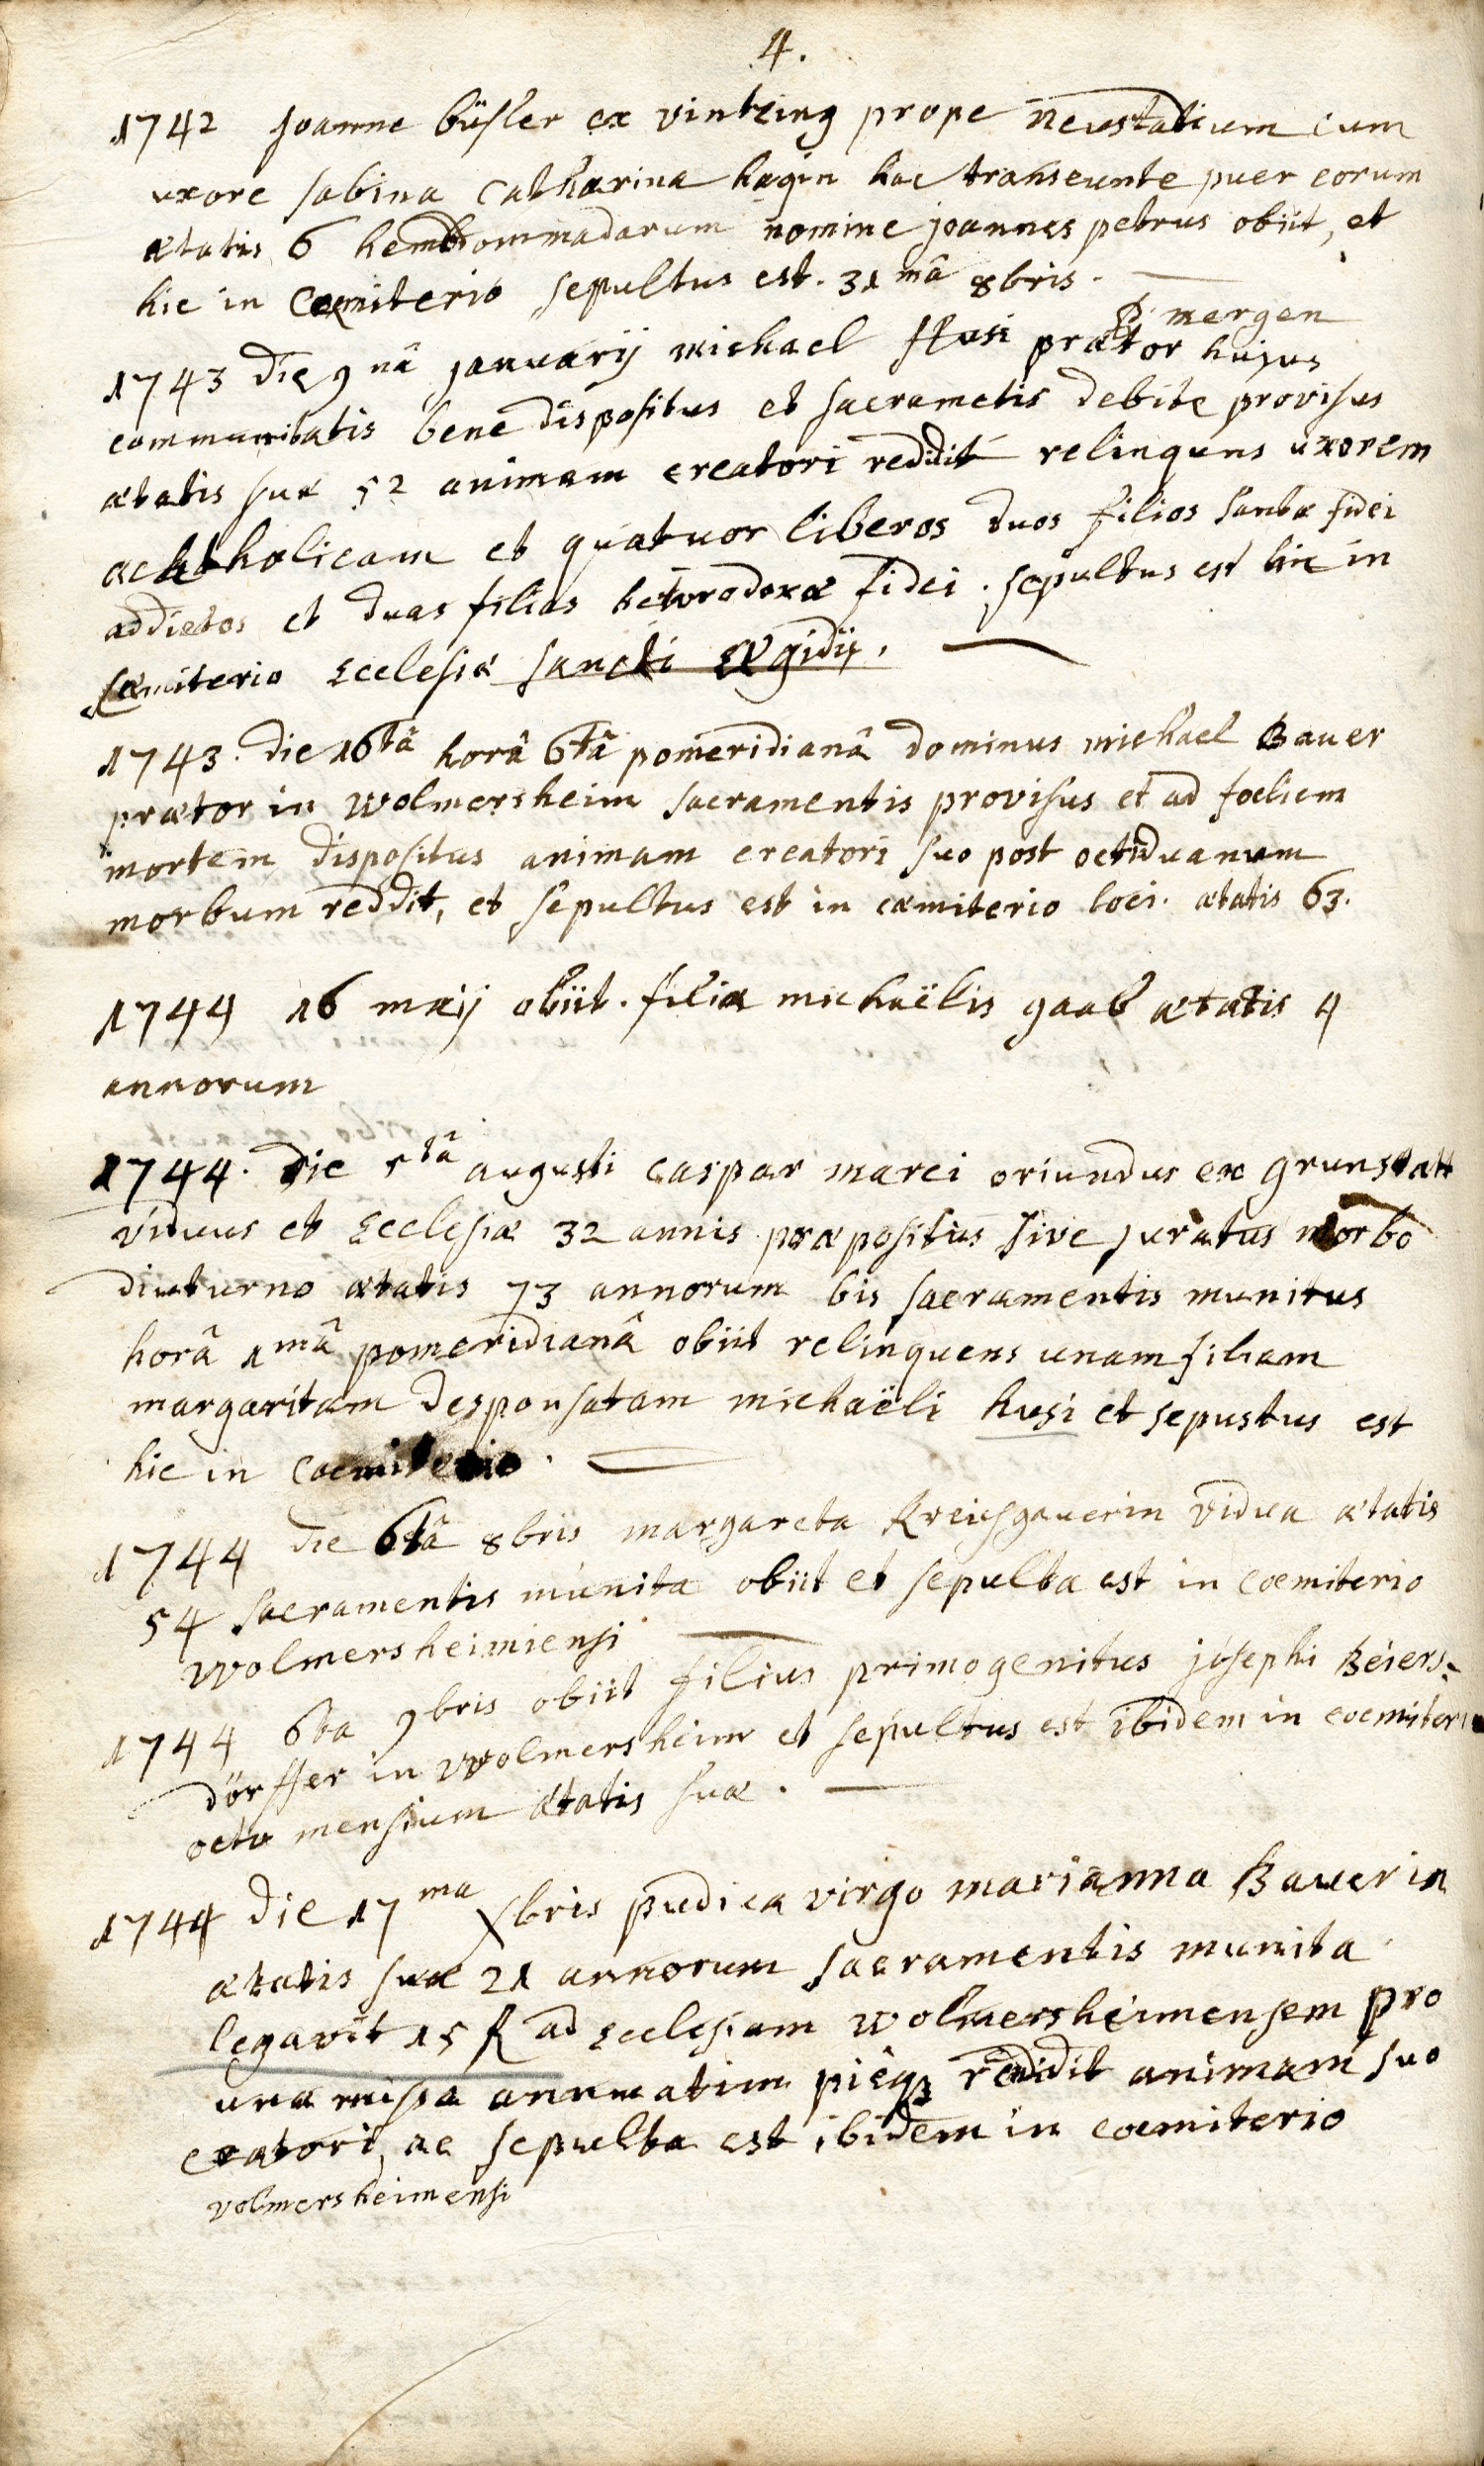 4.
1742 joanne büsler ex vintzing prope neustatium cum
uxore sabina catharina hagin hac transeunte puer eorum
ætatis 6 hembdommadarum nomine joannes petrus obiit, et
hic in Cæmiterio sepultus est. 31 mâ 8bris.
mergen
1743 die 9 nâ januarij michael Husi prætor hujus
communitatis bene dispositus et sacrametis debite provisus
ætatis suæ 52 animam creatori reddidit relinquns uxorem
acatholicam et quatuor liberos duos filios santæ fidei
addictos et duas filias hetorodoxæ fidei. sepultus est hic in
Cæmiterio Ecclesiæ sancti Ægidij.
1743. die 16tâ horâ 6tâ pomeridianâ dominus michael Bauer
prætor in wolmersheim sacramentis provisus et ad foelicem
mortem dispositus animam creatori suo post octiduanum
morbum reddit, et sepultus est in cæmiterio loci. ætatis 63.
1744 16 maij obiit. filia michaëlis gaab ætatis 4
annorum
1744. die 5tâ augusti caspar marci oriundus ex grunstatt
viduus et Ecclesiæ 32 annis præpositus sive juratus morbo
diuturno ætatis 73 annorum bis sacramentis munitus
horâ 1mâ pomeridianâ obiit relinquens unam filiam
margaritam desponsatam michaëli husi et sepustus est
hic in coemiterio.
1744 die 6tâ 8bris margareta Kreisgauerin vidua ætatis
54 sacramentis munita obiit et sepulta est in coemiterio
wolmersheimiensi
1744 6ta 9bris obiit filius primogenitus josephi Beiers=
dörffer in wolmersheim et sepultus est ibidem in coemiterio
octo mensium ætatis suæ.
1744 die 17ma Xbris pudica virgo marianna Bauerin
ætatis suæ 21 annorum sacramentis munita
legavit 15 R ad Ecclesiam wolmersheimensem pro
una missa annuatim pieq3 reddidit animam suo
eratori, ac sepulta est ibidem in coemiterio
volmersheimensi